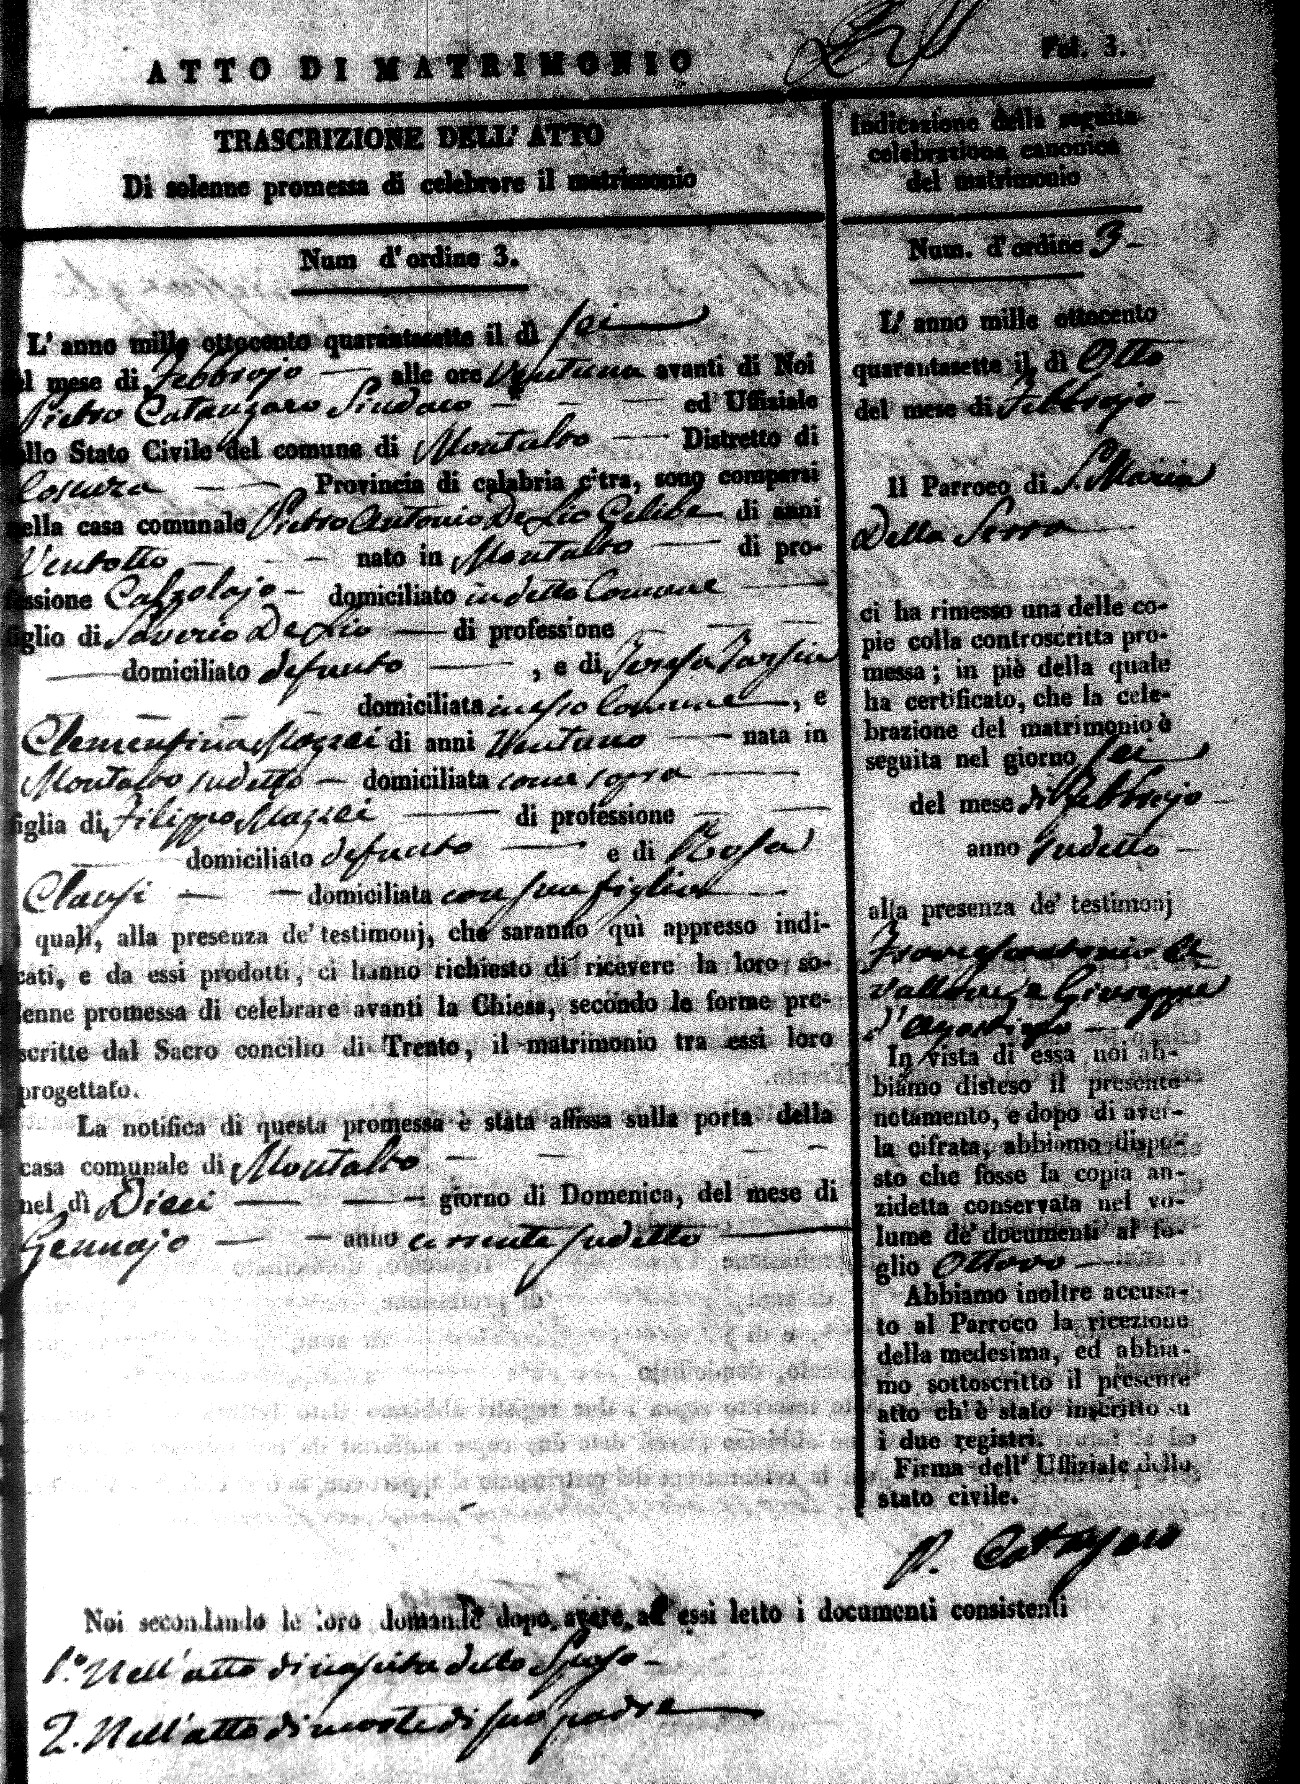 ATTO DI MATRIMONIO
Fol. 3.
TRASCRIZIONE DELL' ATTO
Di solenne promessa di celebrare il matrimonio
Num d'ordine 3.
L' anno mille ottocento quarantasette il dì sei
del mese di Febbrajo alle ore Ventuna avanti di Noi
Pietro Catanzaro Sindaco ed' Uffiziale
dello Stato Civile del comune di Montalto Distretto di
Cosenza Provincia di calabria citra, sono comparsi
nella casa comunale Pietro Antonio De Lio Celibe di anni
Ventotto nato in Montalto di pro-
fessione Calzolajo domiciliato in detto Comune
figlio di Saverio De Lio di professione
domiciliato defunto , e di Teresa
domiciliata in esso Comune , e
Clementina Mazzei di anni Ventuno nata in
Montalto sudetto domiciliata come sopra
figlia di Filippo Mazzei di professione
domiciliato defunto e di Rosa
Clausi domiciliata con sua figlia
i quali, alla presenza de' testimonj, che saranno quì appresso indi-
cati, e da essi prodotti, ci hanno richiesto di ricevere la loro so-
lenne promessa di celebrare avanti la Chiesa, secondo le forme pre-
scritte dal Sacro concilio di Trento, il matrimonio tra essi loro
progettato.
La notifica di questa promessa è stata affissa sulla porta della
casa comunale di Montalto
nel dì Dieci giorno di Domenica, del mese di
Gennajo anno corrente sudetto
Indicazione della seguita
celebrazione canonica
del matrimonio
Num. d'ordine 3
L' anno mille ottocento
quarantasette il dì Otto
del mese di Febbrajo
Il Parroco di S. Maria
Della Serra
ci ha rimesso una delle co-
pie colla controscritta pro-
messa; in piè della quale
ha certificato, che la cele-
brazione del matrimonio è
seguita nel giorno sei
del mese di Febbrajo
anno sudetto
alla presenza de' testimonj
Giuseppe
d'Agostino
In vista di essa noi ab-
biamo disteso il presente
notamento, e dopo di aver-
la cifrata, abbiamo dispo-
sto che fosse la copia an-
zidetta conservata nel vo-
lume de' documenti al fo-
glio Ottavo
Abbiamo inoltre accusa-
to al Parroco la ricezione
della medesima, ed abbia-
mo sottoscritto il presente
atto ch'è stato inscritto su
i due registri.
Firma dell' Uffiziale dello
stato civile.
P. Catanzaro
Noi secondando le loro domande dopo avere ad essi letto i documenti consistenti
1.° Nell'atto di nascita dello Sposo
2. Nell'atto di morte di suo padre